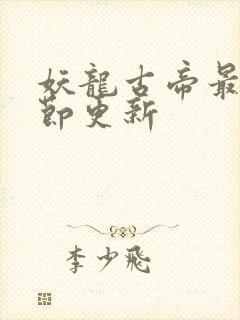 妖龍古帝最
節更新
李少飛